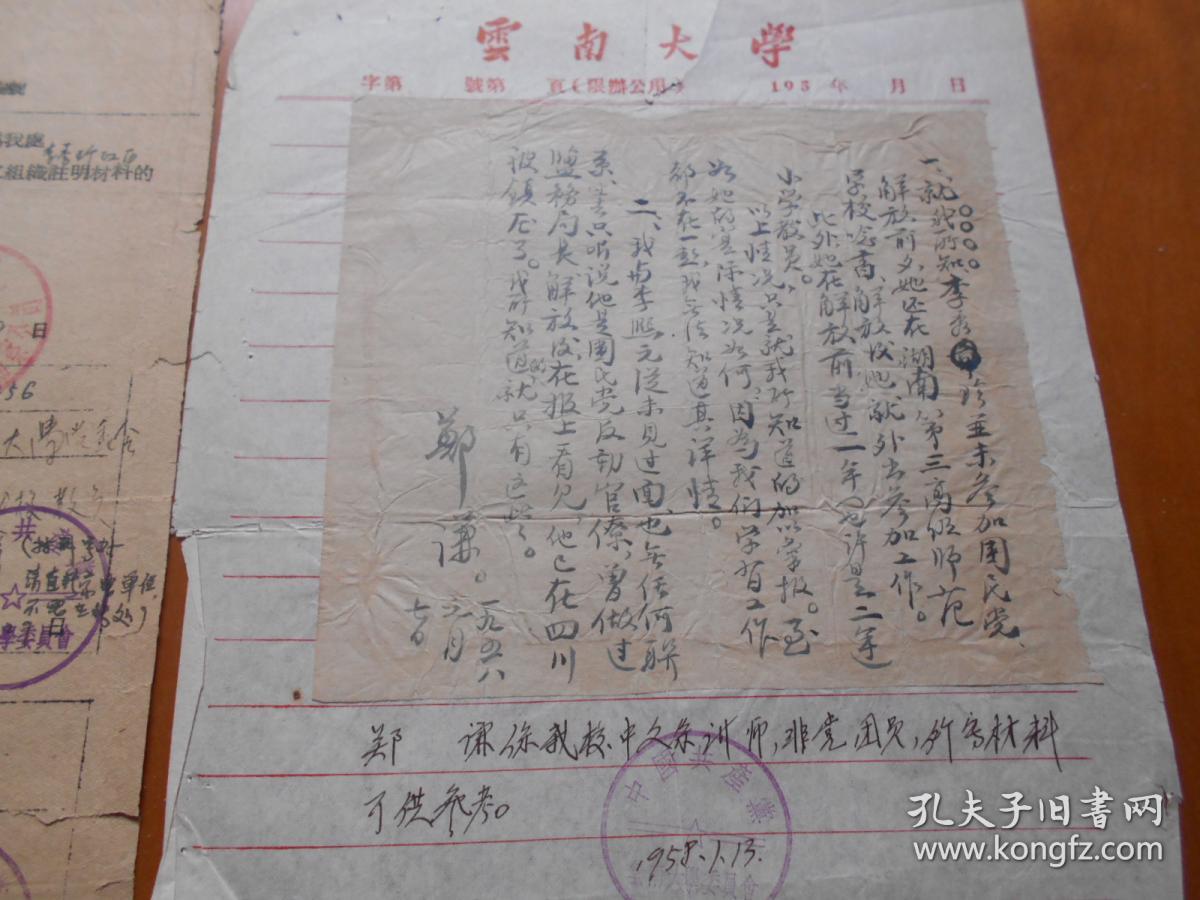 雲南大學
字第 號第 頁(限辦公用) 195 年 月 日
一、就我所知李秀珍並未参加国民党、
解放前夕,她还在湖南第三高级师范
学校念书,解放後她就外出参加工作。
此外她在解放前当过一年(也许是二年)
小学教员。
以上情况只是就我所知道的加以彙报。至
於她的实际情况如何,因为我们学習工作
都不在一起,我无法知道其详情。
二、我与李熙元从未见过面,也无任何联
系。只听说他是国民党反动官僚,曾做过
盐务局长,解放後,在报上看见,他已在四川
被镇压了。我所知道的,就只有这些。
郑谦。一九五八
一月
七日
郑 谦係我校中文系讲师,非党团员,所写材料
可供参考。
中國共產黨
1958.1.13.
委員會
我處
组織註明材料的
日
56
共
請直接
不需
委員會
孔夫子旧书网
www.kongfz.com